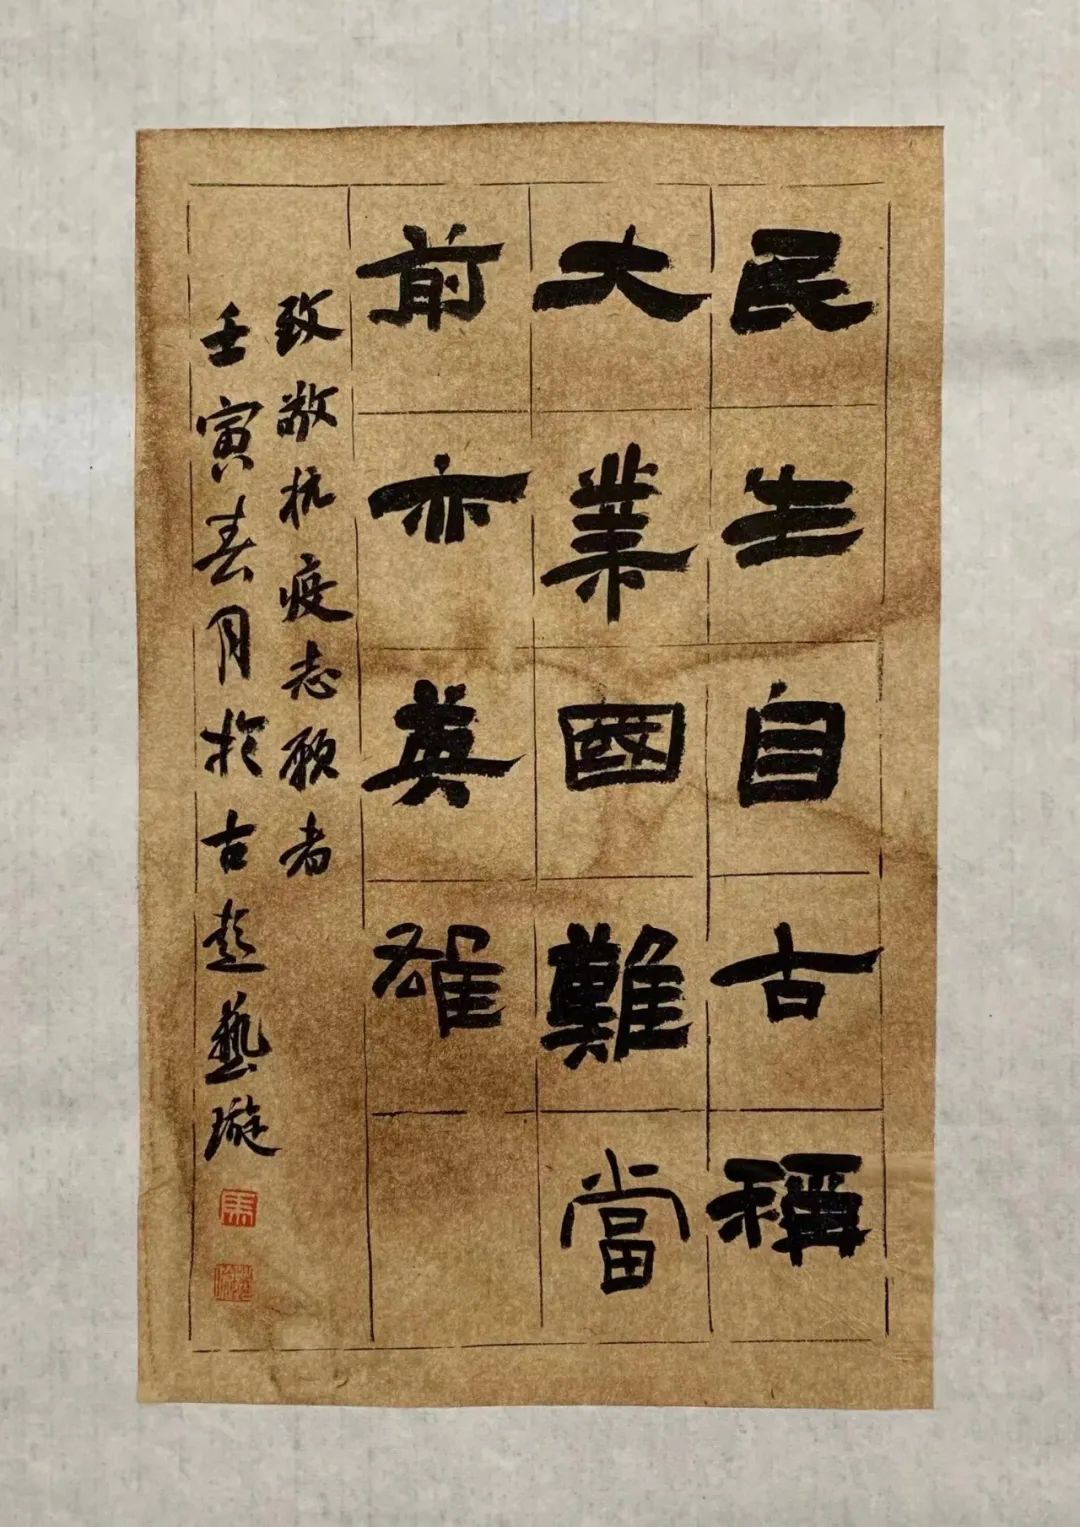 民生自古稱
大業國難當
前亦英雄
致敬抗疫志願者
壬寅春月於古趙藝璇